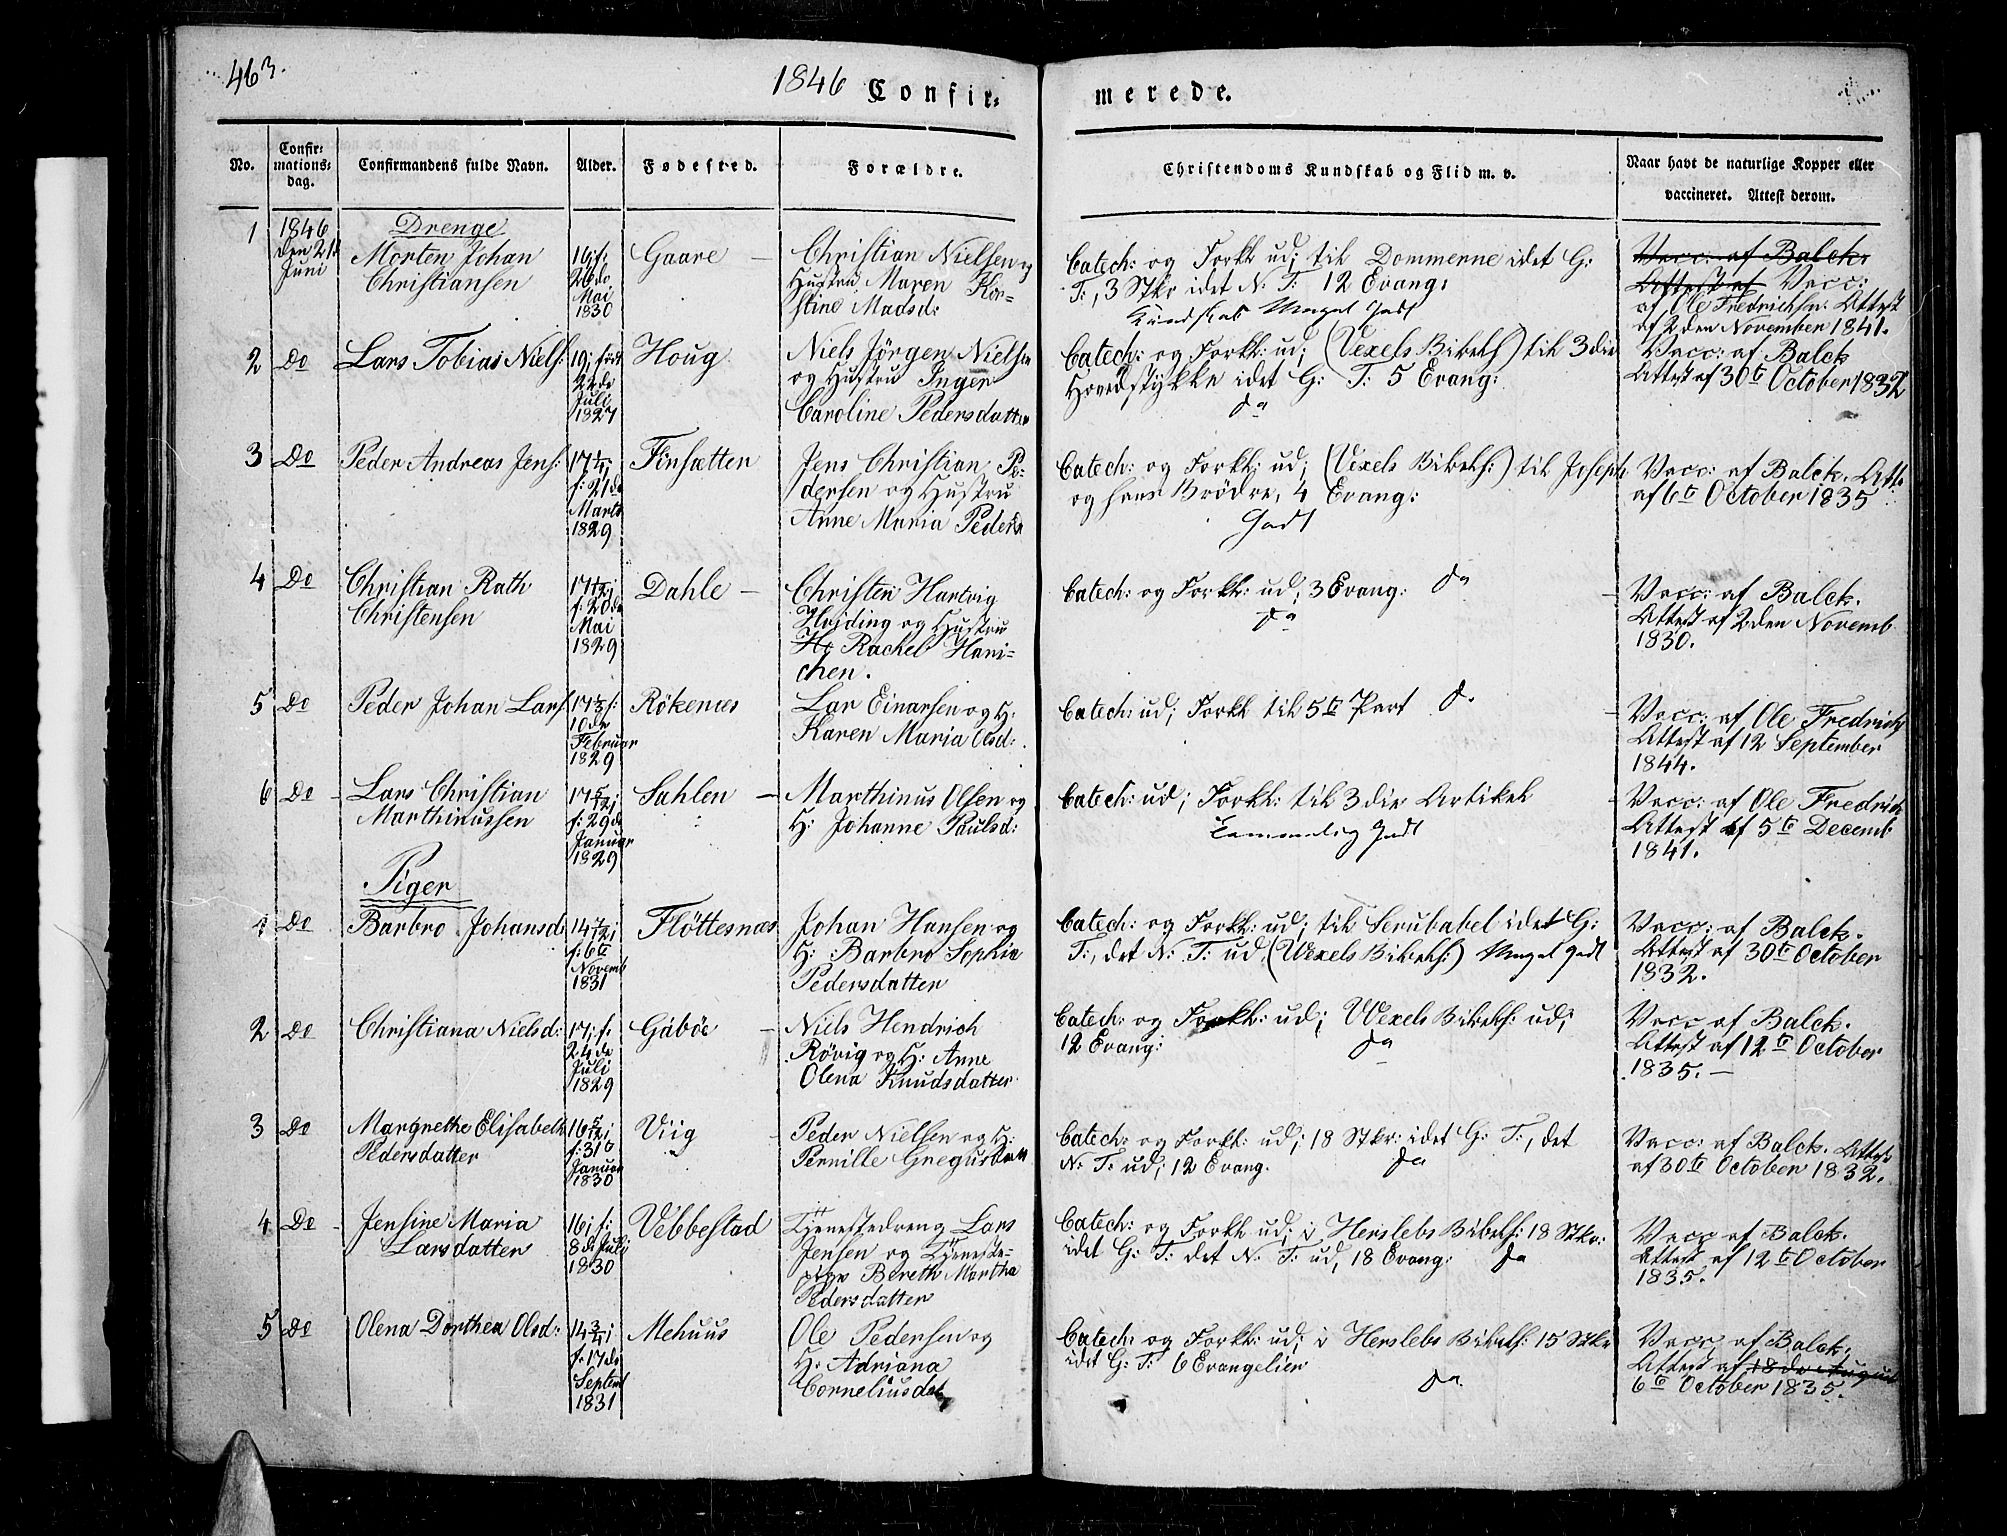 463.
1846 Confir-
merede.
No.
Confir-
mations-
dag.
Confirmandens fulde Navn.
Alder.
Fødested.
Forældre.
Christendoms Kundskab og Flid m. v.
Naar havt de naturlige Kopper eller
vaccineret. Attest derom.
Drenge
1
1846
den 21
Juni
Morten Johan
Christiansen
16, f.
26 de
Mai
1830
Gaare –
Christian Nielsen og
Hustru Maren Kir-
stine Madsd:
Catech: og Forkl ud; til Dommerne idet G:
T:, 3 Stkr idet N: T: 12 Evang:
Kundskab Meget Godt
Vacc: af Balck.
Attest af Vacc:
af Ole Fredrichsen. Attest
af 2den November 1841.
2
Do
Lars Tobias Niels:
19, født
22 de
Juli
1827
Houg
Niels Jörgen Nielsen
og Hustru Inger
Caroline Pedersdatter
Catech: og Forkl: ud; (Vexels Bibelh) til 3die
Hovedstykke idet G: T: 5 Evang:
do
Vacc: af Balck
Attest af 30te October 1832
3
Do
Peder Andreas Jens:
17 1/4,
f: 21 de
Marts
1829
Finsætten
Jens Christian Pe-
dersen og Hustru
Anne Maria Peders
Catech: og Forkl: ud; (Vexels Bibelh:) til Joseph
og hans Brödre, 4 Evang:
Godt
Vacc: af Balck. Att:
af 6te October 1835
4
Do
Christian Rath
Christensen
17 1/12,
f: 20 de
Mai
1829
Dahle –
Christen Hartvig
Heiding og Hustru
H: Rachel Hani-
chen.
Catech: og Forkl: ud, 3 Evang: do
do
Vacc: af Balck.
Attest af 2den Novemb
1830.
5
Do
Peder Johan Lars
17 1/3 f:
10 de
Februar
1829
Rökenæs
Lar Einarsen og H:
Karen Maria Olsd:
Catech: ud; Forkl til 5te Part do
Vacc: af Ole Fredrich
Attest af 12 September
1844.
6
Do
Lars Christian
Marthinussen
17 5/12,
f: 29 de
Januar
1829
Sahlen –
Marthinus Olsen og
H: Johanne Paulsd:
Catech: ud; Forkl: til 3die Artikel
Temmelig Godt
Vacc: af Ole Fredrich
Attest af 5te Decemb
1841.
Piger
1
Do
Barbro Johansd:
14 7/12,
f: 6te
Novemb
1831
Flöttesnæs
Johan Hansen og
H: Barbro Sophia
Pedersdatter
Catech: og Forkl: ud; til Serubabel idet G:
T:, det N: T: ud (Wexels Bibelh:) Meget Godt
Vacc: af Balck.
Attest af 30te October
1832.
2
Do
Christiana Nielsd:
17, f.
24 de
Juli
1829
Gåböe –
Niels Hendrich
Rövig og H: Anne
Olena Knudsdatter
Catech: og Forkl: ud; Wexels Bibelh: ud;
12 Evang: do
Vacc af Balck.
Attest af 12te October
1835. –
3
Do
Margrethe Elisabeth
Pedersdatter
16 5/12,
f: 31
Januar
1830
Viig
Peder Nielsen og H:
Pernille Gregusdatt
Catech: og Forkl: ud; 18 Stkr: idet G: T:, det
N: T: ud, 12 Evang. do
Vacc: af Balck. Attest
af 30te October 1832.
4
Do
Jensine Maria
Larsdatter
16, f:
8 de Juli
1830
Vebbestad
Tjenestedreng Lars
Jensen og Tjeneste-
pige Bereth Martha
Pedersdatter
Catech: og Forkl ud; i Herslebs Bibelh: 18 Stkr:
idet G: T: det N: T: ud, 18 Evang: do
Vacc af Balck.
Attest af 12te October
1835.
5
Do
Olena Dorthea Olsd:
14 3/4,
f. 17 de
Septemb
1831
Mehuus
Ole Pedersen og
H: Adriana
Corneliusdat
Catech: og Forkl: ud; i Herslebs Bibelh: 15 Stkr
idet G: T: 6 Evangelier
do
Vacc af Balck,
Attest af 18de August
6te October 1835.